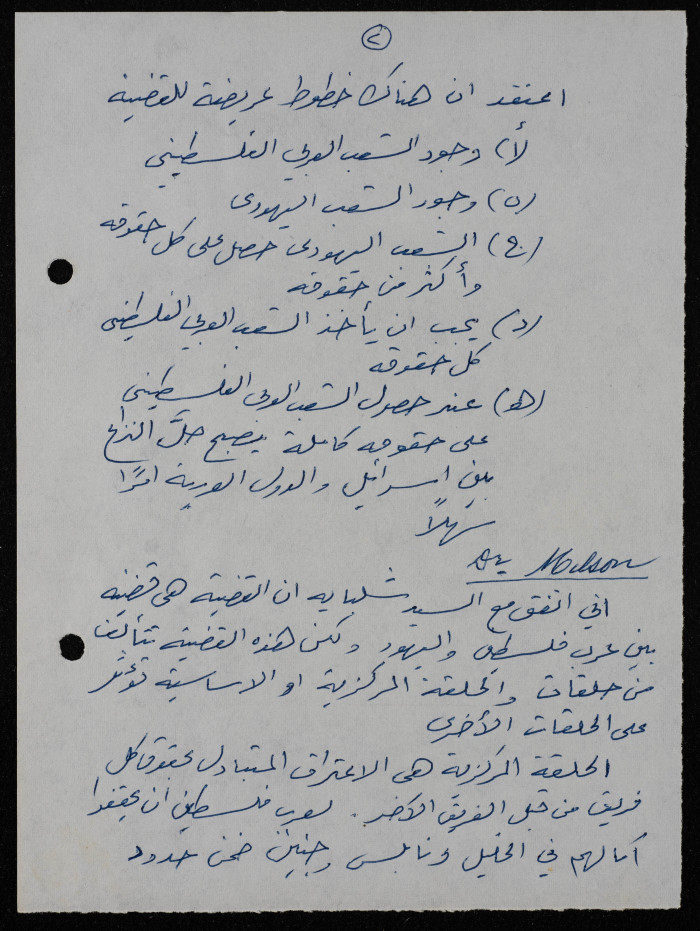 ٢
اعتقد ان هناك خطوط عريضة للقضية
(أ) وجود الشعب العربي الفلسطيني
(ب) وجود الشعب اليهودي
(ج) الشعب اليهودي حصل على كل حقوقه
وأكثر من حقوقه
(د) يجب ان يأخذ الشعب العربي الفلسطيني
كل حقوقه
(هـ) عند حصول الشعب العربي الفلسطيني
على حقوقه كاملة يصبح حلّ النزاع
بين اسرائيل والدول العربية امرًا
سهلاً
Dr. Milson
اني اتفق مع السيد شلبايه ان القضية هي قضية
بين عرب فلسطين واليهود ولكن هذه القضية تتألف
من حلقات والحلقة المركزية او الاساسية تؤثر
على الحلقات الأخرى
الحلقة المركزية هي الاعتراف المتبادل بحقوق كل
فريق من قبل الفريق الآخر. لعرب فلسطين ان يحققوا
آمالهم في الخليل ونابلس وجنين ضمن حدود